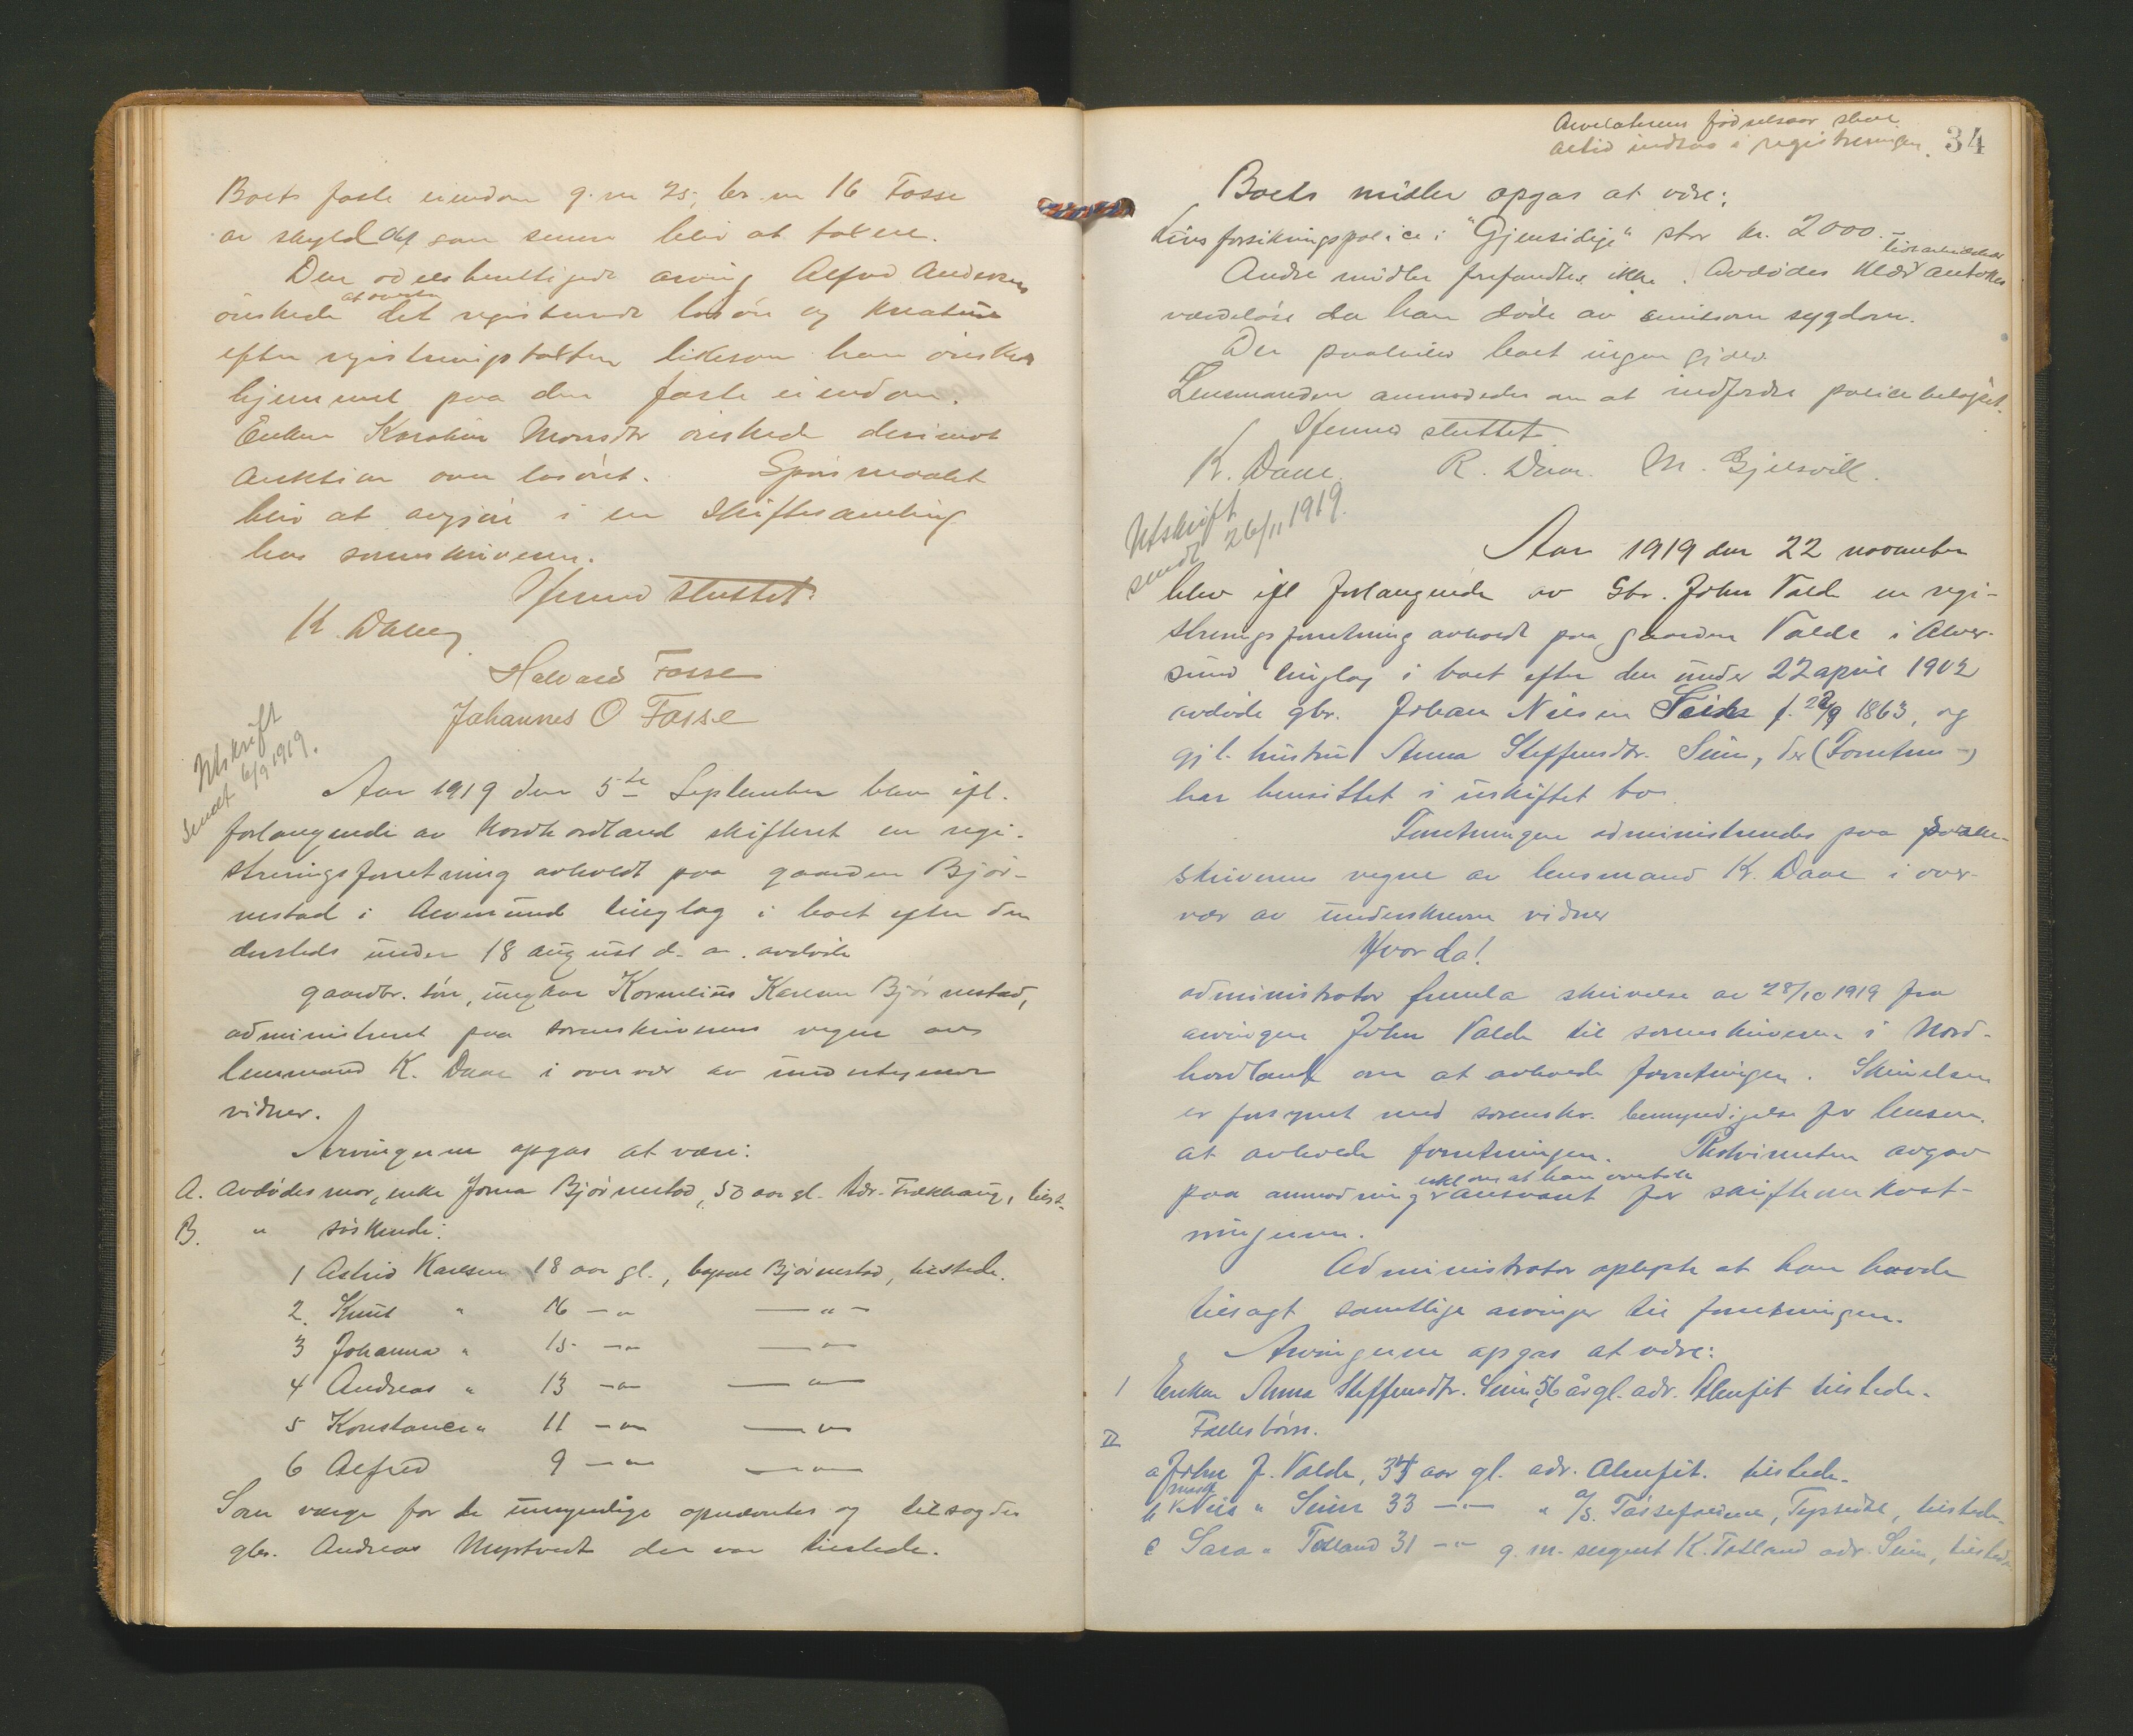 Boets faste eiendom g. nr 25, br. nr 16 Fosse
av skyld som senere blir at taxere.
Den odelsberettigede arving Alfred Andersen
at overta
ønskede det registrerede løsøre og kreature
efter registreringstaksten likesom han ønsker
hjemmel paa den faste eiendom.
Enken Karoline Monsdtr ønskede derimot
auktion over løsøret. Spørsmaalet
blir at avgjøre i en skiftesamling
hos sorenskriveren.
Hermed sluttet.
K. Daae
Halvard Fosse
Johannes O Fosse
Utskrift
sendt 6/9 1919.
Aar 1919 den 5te September blev ifl.
forlangende av Nordhordland skifteret en regi-
streringsforretning avholdt paa gaarden Bjør-
nestad i Alversund tinglag i boet efter den
dersteds under 18 august d. a. avdøde
gaardbr. søn, ungkar Kornelius Karlsen Bjørnestad,
administreret paa sorenskriverens vegne av
lensmand K. Daae i overvær av undertegnede
vidner.
Arvingerne opgas at være:
A. Avdødes mor, enke Joma Bjørnestad, 50 aar gl. Adr. Frekhaug, tilst.
B. " søskende:
1 Astrid Karlsen 18 aar gl., bopæl Bjørnestad, tilstede.
2. Knut " 16 —"— —"—
3 Johanna " 15 —"— —"—
4 Andreas " 13 —"— —"—
5 Konstance " 11 —"— —"—
6 Alfred 9 —"— —"—
Som verge for de umyndige opnævntes og tilsagdes
gbr. Andreas Myrtvedt der var tilstede.
Arveladerens fødselsaar skal
altid indtas i registreringen.
34
Boets midler opgas at være:
Livsforsikringspolice i "Gjensidige" stor kr. 2000.-
Andre midler forefandtes ikke. Avdødes klær antokes
værdiløse da han døde av smitsom sygdom.
Der paahviler boet ingen gjæld.
Lensmanden anmodedes om at indfordre policebeløpet.
Hermed sluttet.
K. Daae. R. Daae. M. Gjelsvik.
Utskrift
sendt 26/11 1919.
Aar 1919 den 22 november
blev ifl forlangende av Gbr. John Valde en regi-
streringsforretning avholdt paa gaarden Valde i Alver-
sund tinglag i boet efter den under 22 april 1902
avdøde gbr. Johan Nilsen f. 22/9 1863, og
gjl. hustru Anna Steffensdtr. Seim, der (Foretrer -)
har hensittet i uskiftet bo.
Forretningen administreredes paa soren-
skriverens vegne av lensmand K. Daae i over-
vær av underskrevne vidner
Hvorda!
administrator fremla skrivelse av 28/10 1919 fra
arvingen John Valde til sorenskriveren i Nord-
hordland om at avholde forretningen. Skrivelsen
er forsynet med sorenskr. bemyndigelse for lensm.
at avholde forretningen. Rekvirenten avgav
erkl om at han overtok
paa anmodning ansvaret for skifteomkost-
ningerne.
Administrator oplyste at han havde
tilsagt samtlige arvinger til forretningen.
Arvingerne opgas at være:
I Enken Anna Steffensdtr. Seim, 56 år gl. adr. Alenfit tilstede.
II Fællesbørn.
a John J. Valde, 34 aar gl. adr. Alenfit. tilstede.
b Nils " Seim 33 —"— " a/s. Tyssefaldene, Tyssedal, tilstede.
c Sara " Totland 31 —"— g. m. sergent K. Totland adr. Seim, tilstede